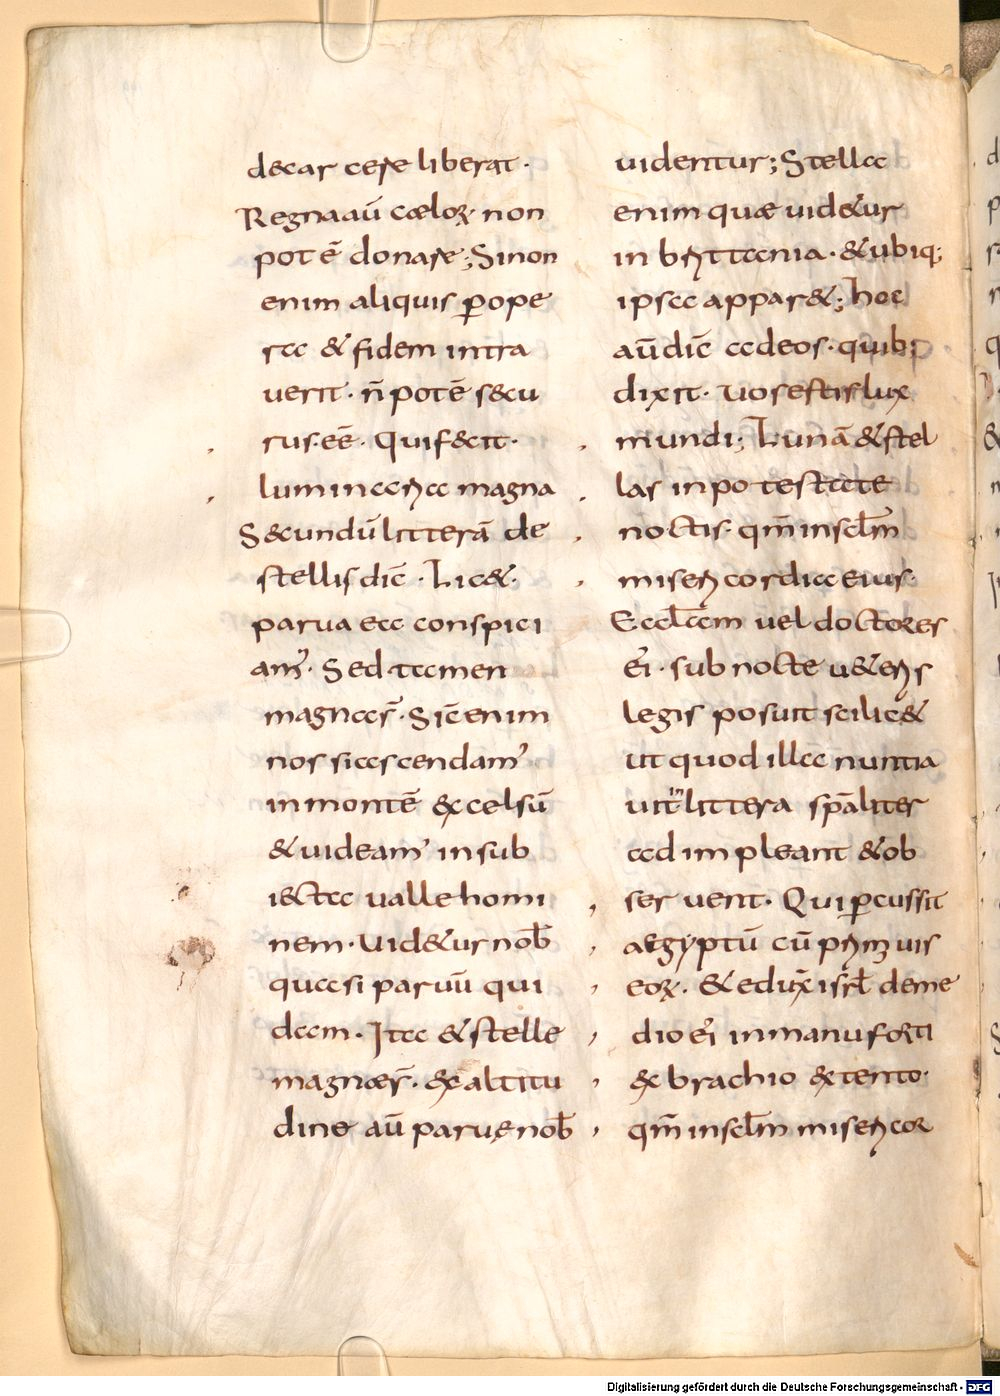 decarcere liberat·
Regna aū cœloꝝ· non
potē donare; Si non
enim aliquis ꝑ ope
ra & fidem intra
uerit· n̄ potē s&cu
rus· eē· Qui f&cit·
luminaria magna
S&cundū litterā de
stellis dic̄· Lic&·
parua ea conspici
am᾽· Sed tamen
magna s̄· Sic̄ enim
nos si ascendam᾽
in montē &xcelsū
& uideam᾽ in sub
i&cta ualle homi
nem· Uid&ur nob̄
quasi paruū qui
dam· Ita & stelle
magnæ s̄· &x altitu
dine aū paruę nob̄
uidentur; Stella
enim quæ uid&ur
in brittania· & ubiq;
ipsa appar&; hoc
aū dic̄ ad eos· quib;
dixit· Uos estis lux
mundi; Lunā & stel
las in potestate
noctis· qm̄ in sclm̄
misericordia eius·
Eccl̄am uel doctores
ei᾽· sub nocte u&eris
legis posuit scilic&
ut quod illa nuntia
uit ꝑ littera sp̄aliter
adimpleant & ob
seruent· Qui ꝑcussit
aegyptū cū primiuis
eoꝝ· & eduxit isrl̄ de me
dio ei᾽ in manu forti
&x brachio &xtento·
qm̄ in sclm̄ misericor
Digitalisierung gefördert durch die Deutsche Forschungsgemeinschaft - DFG